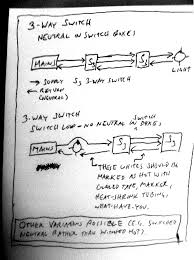 3-WAY SWITCH
NEUTRAL IN SWITCH BOXES
MAINS
S3
S3
LIGHT
→ SUPPLY S3 3-WAY SWITCH
← RETURN
(NEUTRAL)
3-WAY SWITCH
SWITCH LOOP - NO NEUTRAL IN SWITCH BOXES
MAINS
S3
S3
THESE WHITES SHOULD BE
MARKED AS HOT WITH
COLORED TAPE, MARKER,
HEAT-SHRINK TUBING,
WHAT-HAVE-YOU.
OTHER VARIATIONS POSSIBLE (E.G. SWITCHED
NEUTRAL RATHER THAN SWITCHED HOT)